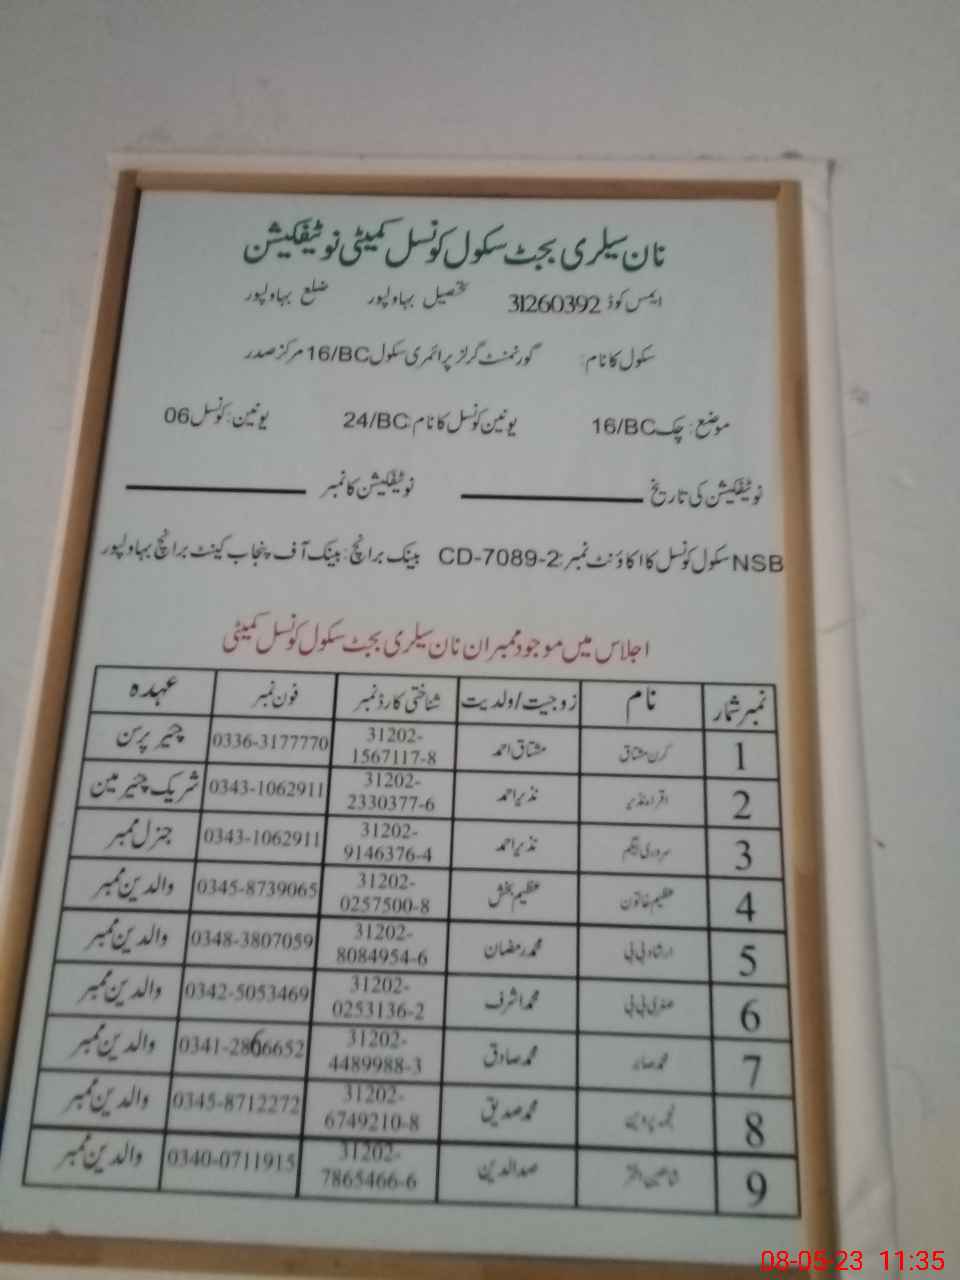 نان سیلری بجٹ سکول کونسل کمیٹی نوٹیفکیشن
ایمس کوڈ 31260392 تحصیل بہاولپور ضلع بہاولپور
سکول کا نام: گورنمنٹ گرلز پرائمری سکول 16/BC مرکز صدر
موضع: چک 16/BC یونین کونسل کا نام: 24/BC یونین: کونسل 06
نوٹیفکیشن کی تاریخ نوٹیفکیشن کا نمبر
NSB سکول کونسل کا اکاؤنٹ نمبر: CD-7089-2 بینک برانچ: بینک آف پنجاب کینٹ برانچ بہاولپور
اجلاس میں موجود ممبران نان سیلری بجٹ سکول کونسل کمیٹی
نمبر شمار نام زوجیت/ولدیت شناختی کارڈ نمبر فون نمبر عہدہ
1 کرن مشتاق مشتاق احمد 31202-1567117-8 0336-3177770 چئیر پرسن
2 اقراء نذیر نذیر احمد 31202-2330377-6 0343-1062911 شریک چئیر مین
3 سروری بیگم نذیر احمد 31202-9146376-4 0343-1062911 جنرل ممبر
4 عظیم خاتون عظیم بخش 31202-0257500-8 0345-8739065 والدین ممبر
5 ارشاد بی بی محمد رمضان 31202-8084954-6 0348-3807059 والدین ممبر
6 صغری بی بی محمد اشرف 31202-0253136-2 0342-5053469 والدین ممبر
7 محمد صابر محمد صادق 31202-4489988-3 0341-2866652 والدین ممبر
8 نجمہ پروین محمد صدیق 31202-6749210-8 0345-8712272 والدین ممبر
9 شاہین اختر صدالدین 31202-7865466-6 0340-0711915 والدین ممبر
08-05-23 11:35